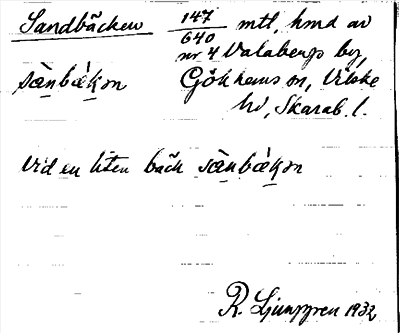 Sandbäcken 147/640 mtl, hmd av
nr 4 Valabergs by,
sànbækɒn Gökhems sn, Vilske
hd, Skarab. l.
Vid en liten bäck sànbækɒn
R. Ljunggren 1932